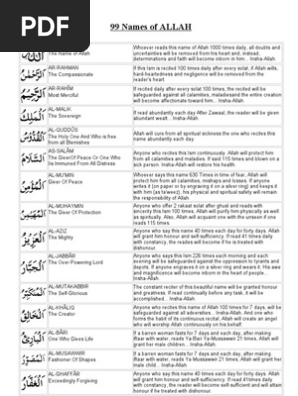 PDF
99 Names of ALLAH
The Name of Allah
Whoever reads this name of Allah 1000 times daily, all doubts and
uncertainties will be removed from his heart and, instead,
determinations and faith will become inborn in him... Insha-Allah
AR-RAHMAN
The Compassionate
If this ism is recited 100 times daily after every salat.
hard-heartedness and negligence will be removed from the
reader's heart
الرَّحْمَنُ
AR-RAHIM
Most Merciful
If recited daily after every solat 100 times, the recited will be
safeguarded against all calamities,
become affectionate toward him... Insha-Allah
الرَّحِيمُ
AL-MALIK
The Sovereign
If read abundantly each day After Zawaal, the reader will be given
abundant wealth... Insha-Allah
الْمَلِكُ
AL-QUDDUS
The Holy One And Who is free
from all Blemishes
Allah will cure from all spiritual sickness the one who recites this
name abundantly each day.
الْقُدُّوسُ
AS-SALAM
The Giver Of Peace Or One Who
is Immuned From All Distress
Anyone who recites this ism continuously, Allah will protect him
from all calamities and maladies. If said 115 times and blown on a
sick person. Insha-Allah will restore his health
السَّلَامُ
AL-MU'MIN
Giver Of Peace
Whoever says this name 630 Times in time of fear, Allah will
protect him from all calamities, mishaps and losses. If anyone
writes it (on paper or by engraving it on a silver ring) and keeps it
with him (as taweez), his physical and spiritual safety will remain
the responsibility of Allah
الْمُؤْمِنُ
AL-MUHAYMIN
The Giver Of Protection
Anyone who offer 2 rakaat solat after ghusl and reads with
sincerity this ism 100 times, Allah will purify him physically as well
as spiritually. Also, Allah will acquaint one with the unseen if one
reads 115 times.
الْمُهَيْمِنُ
AL-AZIZ
The Mighty
Anyone who say this name 40 times each day for forty days. Allah
will grant him honour and self-sufficiency. If read 41 times daily
with constancy, the reades will become if he is treated with
dishonour.
الْعَزِيزُ
AL-JABBAR
The Over-Powering Lord
Anyone who says this ism 226 times each morning and each
evening will be safeguarded against the oppression to tyrants and
depots. If anyone engraves it on a silver ring and wears it, His awe
and magnificence will become inborn in the heart of people...
Insha-Allah
الْجَبَّارُ
AL-MUTAKABBIR
The Self-Glorious
The constant recter of this beautiful name will be granted honour
and greatness. If read continually before any task, it will be
accomplished... Insha-Allah
الْمُتَكَبِّرُ
AL-KHALIQ
The Creator
Anyone who recites this name of Allah 100 times for 7 days, will be
safeguarded against all adversities... Insha-Allah. And one who
forms the habit of its continuous recital, Allah will create an angel
who will worship Allah continuously on his behalf
الْخَالِقُ
AL-BARI
One Who Gives Life
If a barren woman fasts for 7 days and each day, after making
iftaar with water, reads Ya Bari Ya Mussawwir 21 times, Allah will
grant her male children... Insha-Allah
الْبَارِئُ
AL-MUSAWWIR
Fashioner Of Shapes
If a barren woman fasts for 7 days and each day, after making
iftaar with water, reads Ya Mussawwir 21 times, Allah will grant her
male child... Insha-Allah
الْمُصَوِّرُ
AL-GHAFFAR
Exceedingly Forgiving
Anyone who say this name 40 times each day for forty days. Allah
will grant him honour and self-sufficiency. If read 41times daily
with constancy, the reader will become self-sufficient and will attain
honour if treated with dishonour.
الْغَفَّارُ